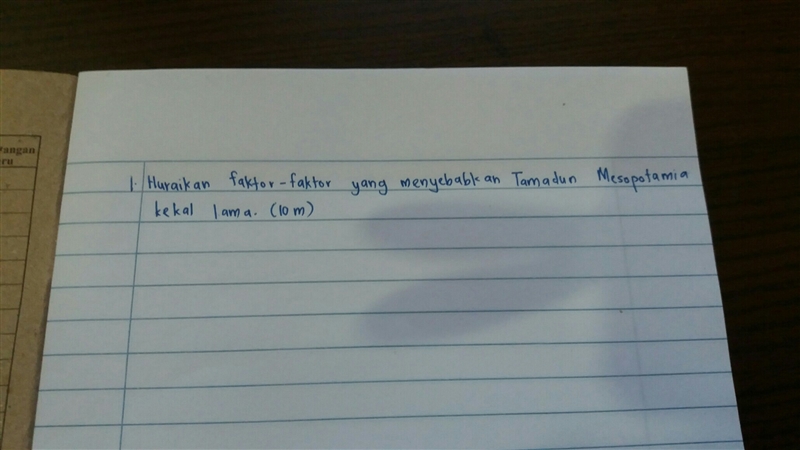 1. Huraikan faktor-faktor yang menyebabkan Tamadun Mesopotamia
kekal lama. (10 m)